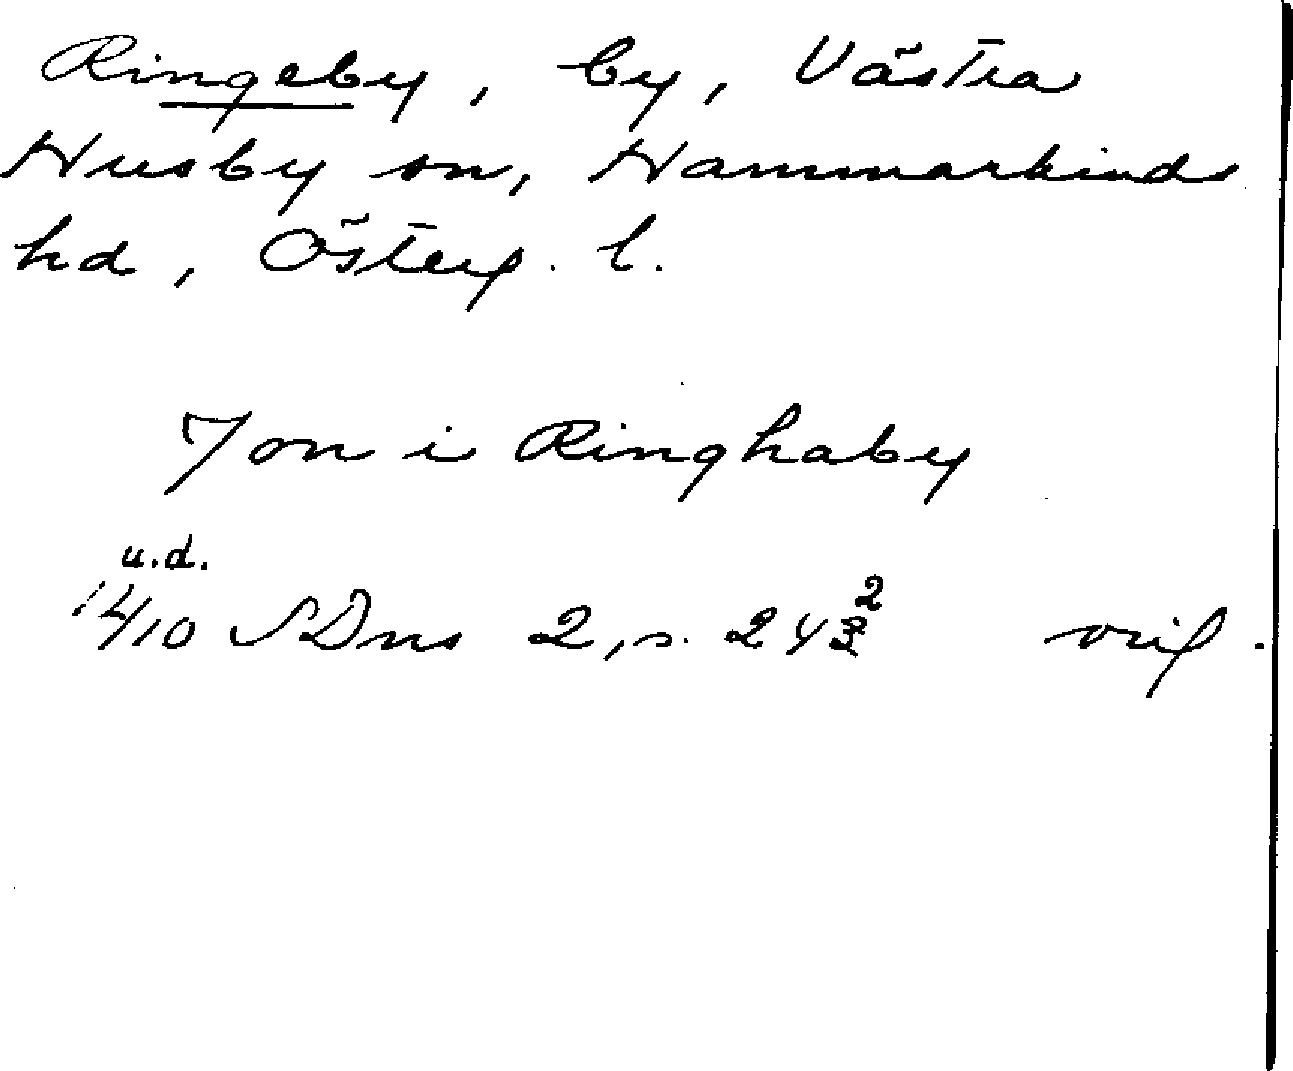 Ringeby, by, Västra
Husby sn, Hammarkinds
hd, Österg. l.
Jon i Ringhaby
u.d.
1410 SDns 2, s. 242 orig.